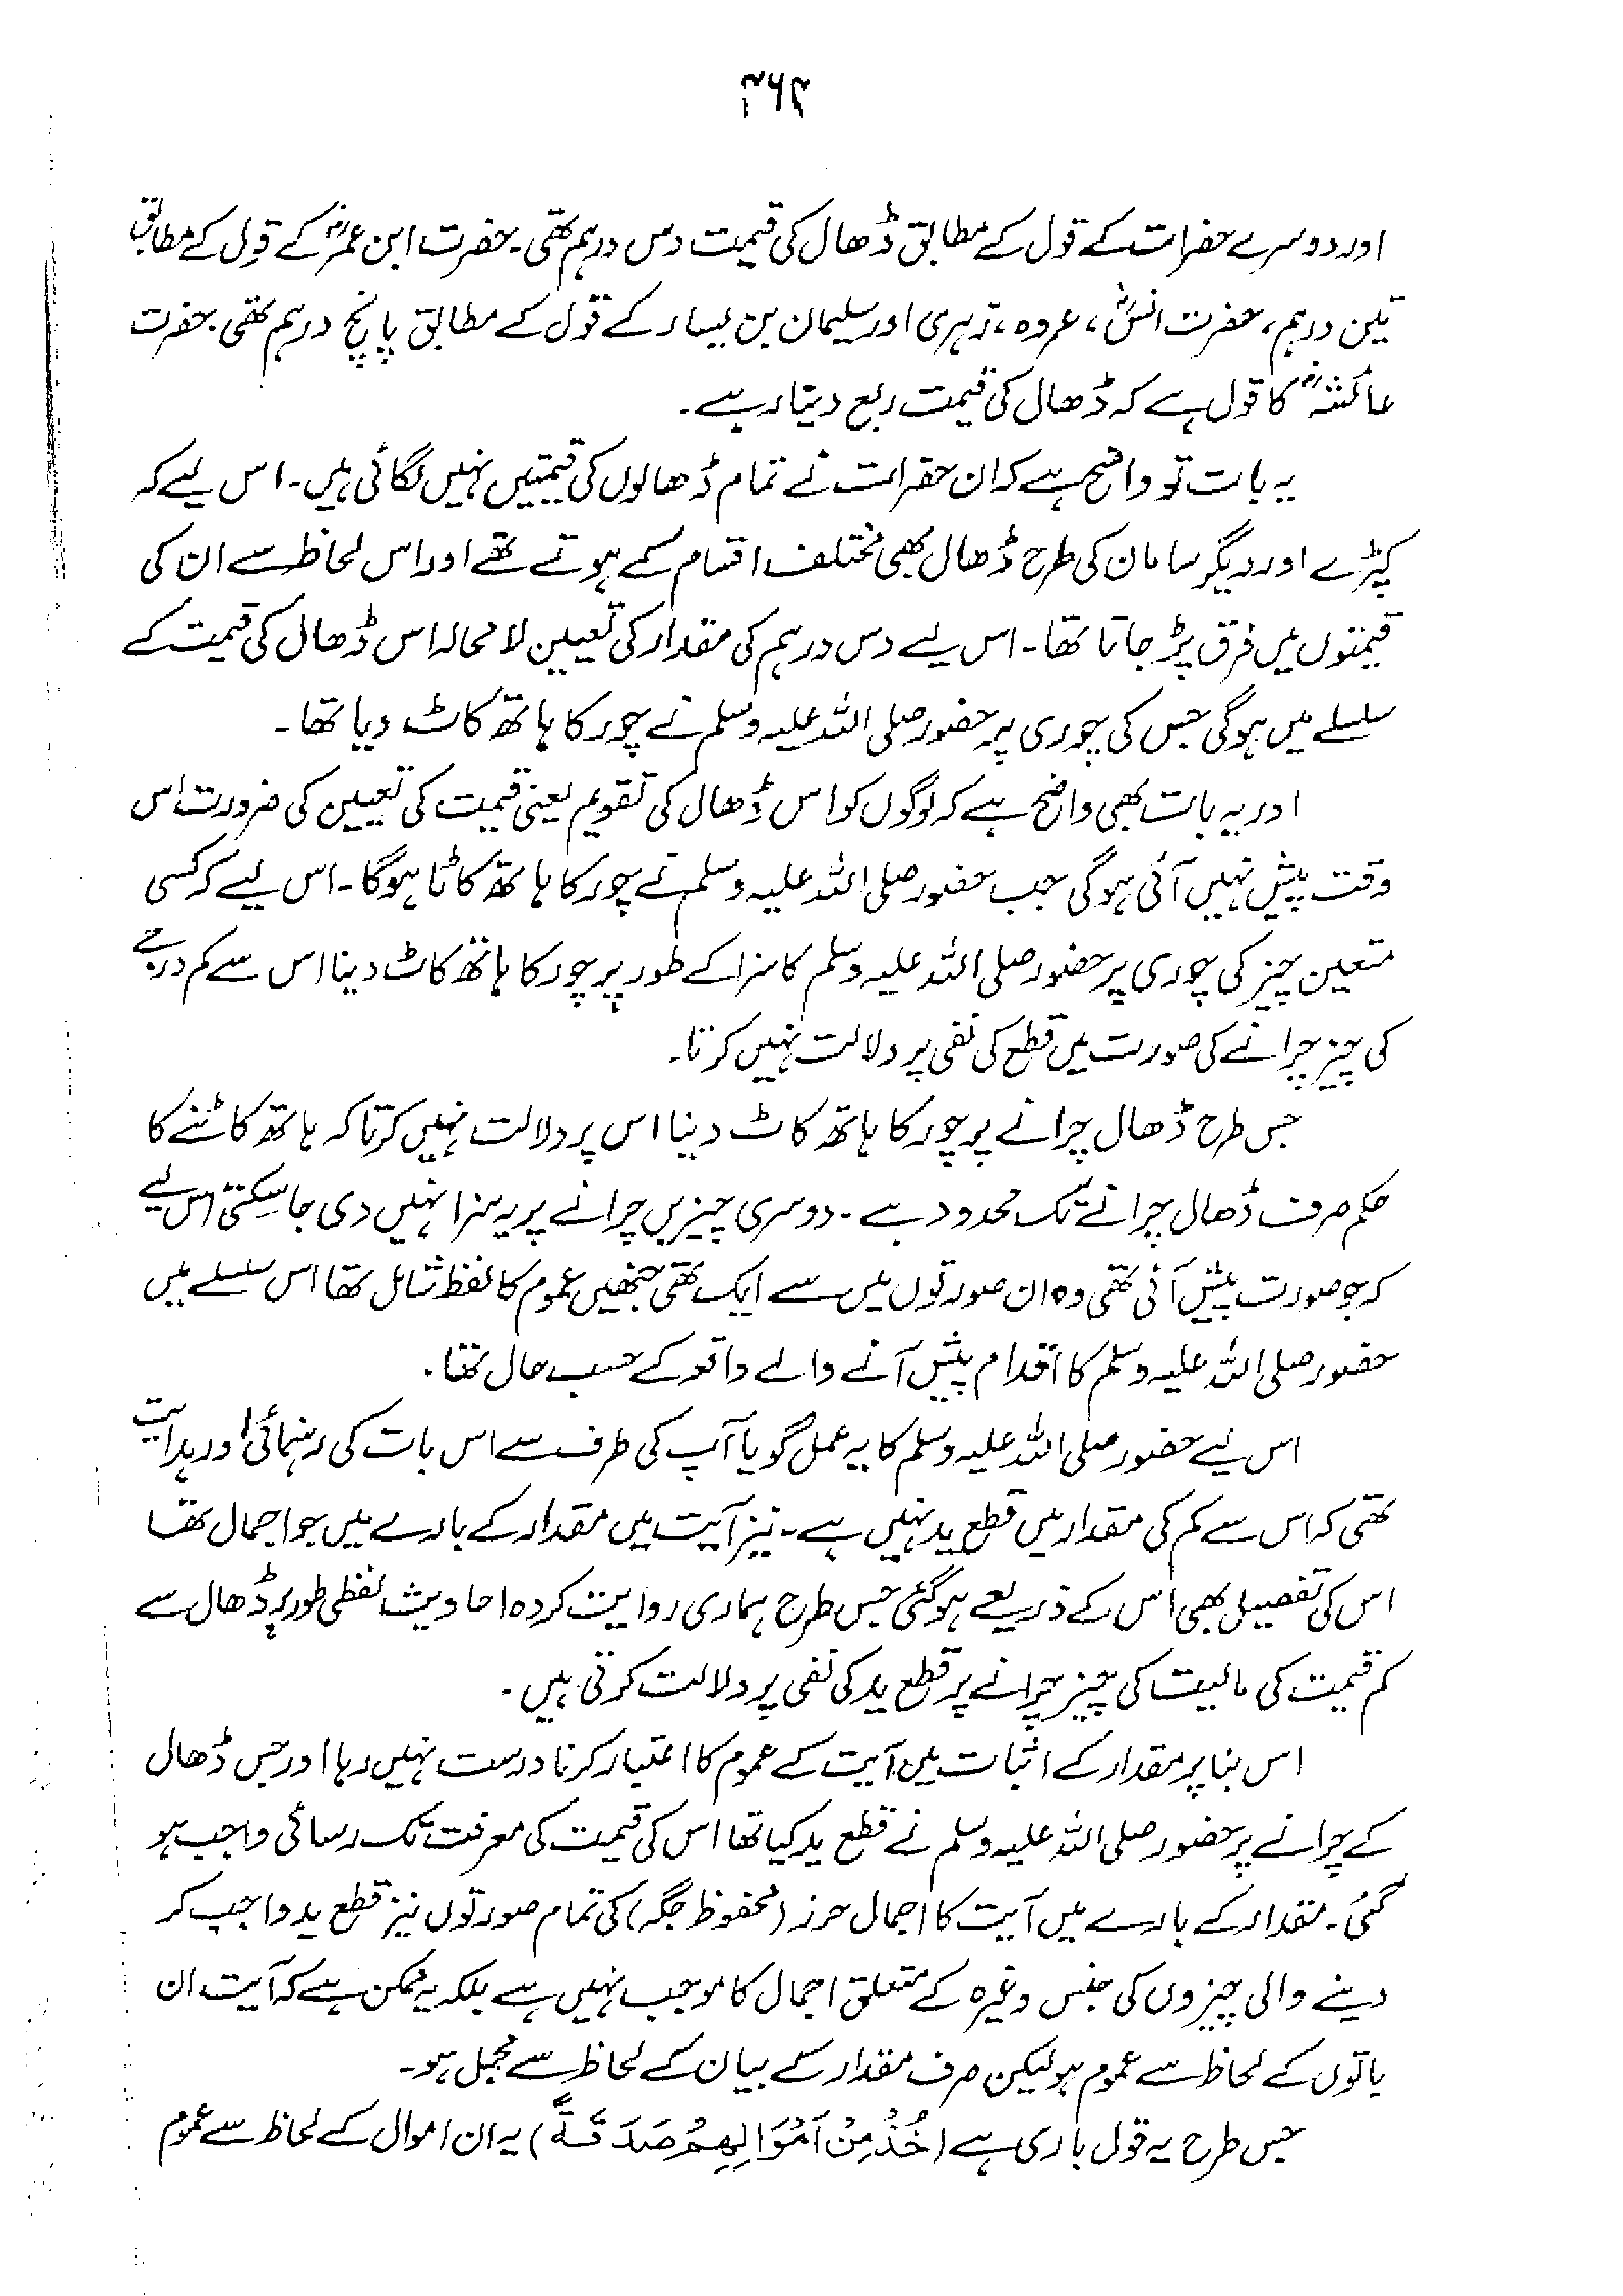 ۳۶۲
اور دوسرے حضرات کے قول کے مطابق ڈھال کی قیمت دس درہم تھی۔ حضرت ابن عمرؓ کے قول کے مطابق
تین درہم، حضرت انسؓ، عروہ، زہری اور سلیمان بن یسار کے قول کے مطابق پانچ درہم تھی۔ حضرت
عائشہؓ کا قول ہے کہ ڈھال کی قیمت ربع دینار ہے۔
یہ بات تو واضح ہے کہ ان حضرات نے تمام ڈھالوں کی قیمتیں نہیں لگائی ہیں۔ اس لیے کہ
کپڑے اور دیگر سامان کی طرح ڈھال بھی مختلف اقسام کے ہوتے تھے اور اس لحاظ سے ان کی
قیمتوں میں فرق پڑ جاتا تھا۔ اس لیے دس درہم کی مقدار کی تعیین لا محالہ اس ڈھال کی قیمت کے
سلسلے میں ہوگی جس کی چوری پر حضور صلی اللہ علیہ وسلم نے چور کا ہاتھ کاٹ دیا تھا۔
اور یہ بات بھی واضح ہے کہ لوگوں کو اس ڈھال کی تقویم یعنی قیمت کی تعیین کی ضرورت اس
وقت پیش نہیں آئی ہوگی جب حضور صلی اللہ علیہ وسلم نے چور کا ہاتھ کاٹا ہوگا۔ اس لیے کہ کسی
متعین چیز کی چوری پر حضور صلی اللہ علیہ وسلم کا سزا کے طور پر چور کا ہاتھ کاٹ دینا اس سے کم درجے
کی چیز چرانے کی صورت میں قطع کی نفی پر دلالت نہیں کرتا۔
جس طرح ڈھال چرانے پر چور کا ہاتھ کاٹ دینا اس پر دلالت نہیں کرتا کہ ہاتھ کاٹنے کا
حکم صرف ڈھال چرانے تک محدود ہے۔ دوسری چیزیں چرانے پر یہ سزا نہیں دی جاسکتی اس لیے
کہ جو صورت پیش آئی تھی وہ ان صورتوں میں سے ایک تھی جنھیں عموم کا لفظ شامل تھا اس سلسلے میں
حضور صلی اللہ علیہ وسلم کا اقدام پیش آنے والے واقعہ کے حسب حال تھا۔
اس لیے حضور صلی اللہ علیہ وسلم کا یہ عمل گویا آپ کی طرف سے اس بات کی رہنمائی اور ہدایت
تھی کہ اس سے کم کی مقدار میں قطع ید نہیں ہے۔ نیز آیت میں مقدار کے بارے میں جو اجمال تھا
اس کی تفصیل بھی اس کے ذریعے ہوگئی جس طرح ہماری روایت کردہ احادیث لفظی طور پر ڈھال سے
کم قیمت کی مالیت کی چیز چرانے پر قطع ید کی نفی پر دلالت کرتی ہیں۔
اس بنا پر مقدار کے اثبات میں آیت کے عموم کا اعتبار کرنا درست نہیں رہا اور جس ڈھال
کے چرانے پر حضور صلی اللہ علیہ وسلم نے قطع ید کیا تھا اس کی قیمت کی معرفت تک رسائی واجب ہو
گئی۔ مقدار کے بارے میں آیت کا اجمال حرز (محفوظ جگہ) کی تمام صورتوں نیز قطع ید واجب کر
دینے والی چیزوں کی جنس وغیرہ کے متعلق اجمال کا موجب نہیں ہے بلکہ یہ ممکن ہے کہ آیت ان
باتوں کے لحاظ سے عموم ہو لیکن صرف مقدار کے بیان کے لحاظ سے مجمل ہو۔
جس طرح یہ قول باری ہے (خُذْ مِنْ اَمْوَالِهِمْ صَدَقَةً) یہ ان اموال کے لحاظ سے عموم